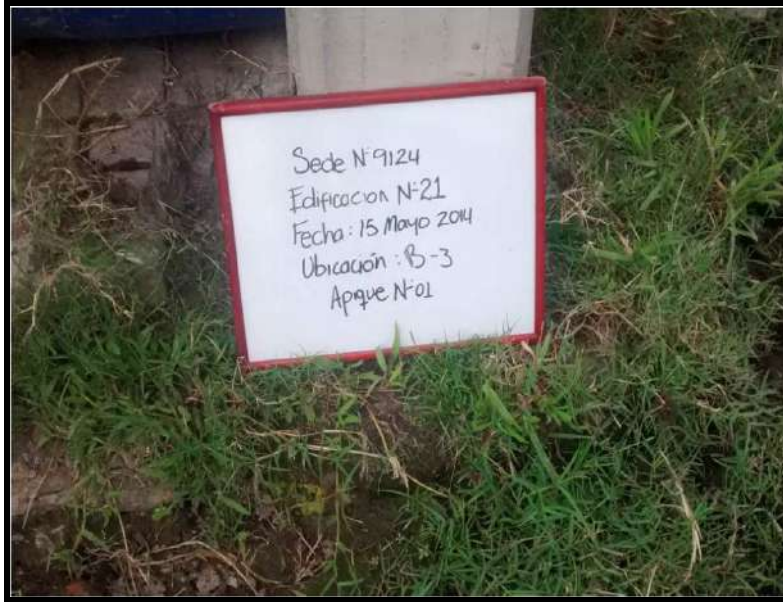 Sede N° 9124
Edificacion N° 21
Fecha: 15 Mayo 2014
Ubicación: B-3
Apique N° 01